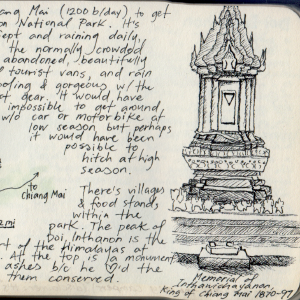 ang Mai (1200 b/day) to get
on National Park. It's
Sept and raining daily,
the normally crowded
abandoned, beautifully
tourist vans, and rain
ofing & gorgeous w/ the
et dear, it would have
impossible to get around
w/o car or motorbike at
low season, but perhaps
it would have been
possible to
hitch at high
season.
to
Chiang Mai
There's villages
& food stands,
within the
park. The peak of
Doi Inthanon is the
rt of the himalayas o
At the top is a monument
ashes b/c he ♡'d the
them conserved.
Memorial of
Inthawichayanan,
King of Chiang Mai 1870-97